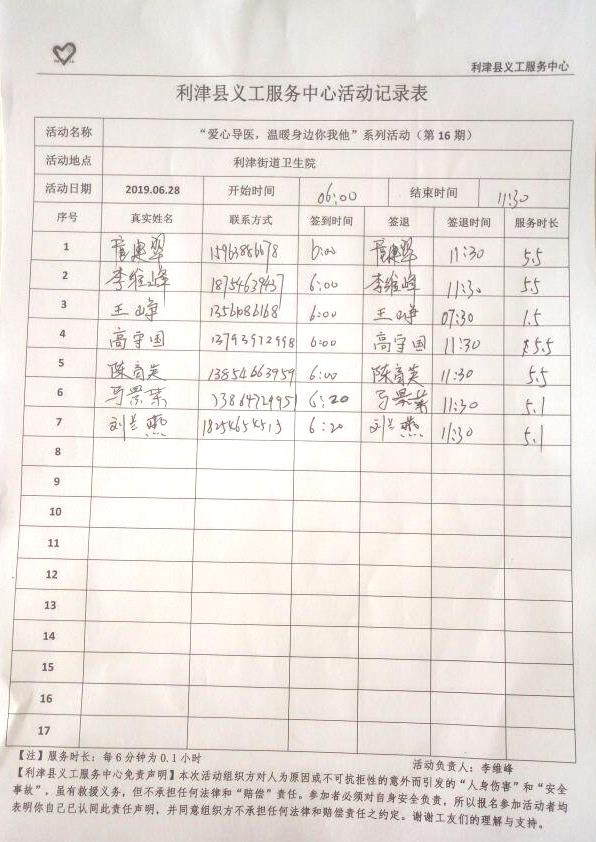 利津县义工服务中心
利津县义工服务中心活动记录表
活动名称 “爱心导医，温暖身边你我他”系列活动（第16期）
活动地点 利津街道卫生院
活动日期 2019.06.28 开始时间 06:00 结束时间 11:30
序号 真实姓名 联系方式 签到时间 签退 签退时间 服务时长
1 6:00 11:30 5.5
2 李维峰 18754639437 6:00 李维峰 11:30 5.5
3 王峥 13561086168 6:00 王峥 07:30 1.5
4 高守国 13793972998 6:00 高守国 11:30 5.5
5 陈育英 13854663959 6:00 陈育英 11:30 5.5
6 马景荣 6:20 马景荣 11:30 5.1
7 刘兰燕 18254654513 6:20 刘兰燕 11:30 5.1
8
9
10
11
12
13
14
15
16
17
【注】服务时长：每6分钟为0.1小时
活动负责人：李维峰
【利津县义工服务中心免责声明】本次活动组织方对人为原因或不可抗拒性的意外而引发的“人身伤害”和“安全
事故”，虽有救援义务，但不承担任何法律和“赔偿”责任。参加者必须对自身安全负责，所以报名参加活动者均
表明你自己已认同此责任声明，并同意组织方不承担任何法律和赔偿责任之约定。谢谢工友们的理解与支持。